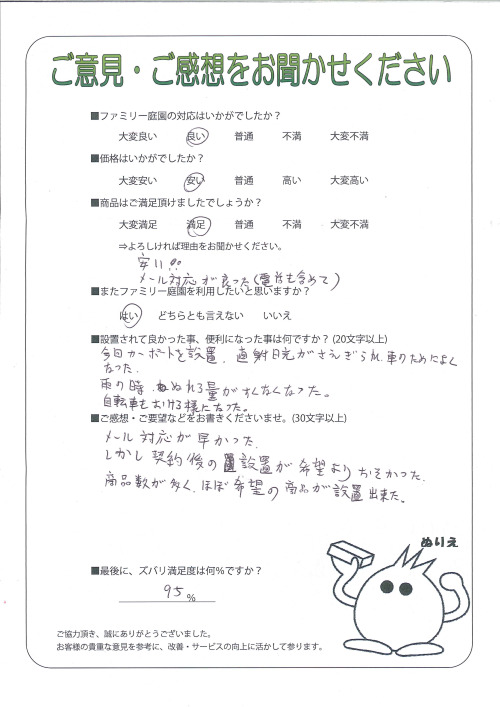 ご意見・ご感想をお聞かせください
■ファミリー庭園の対応はいかがでしたか？
大変良い 良い 普通 不満 大変不満
■価格はいかがでしたか？
大変安い 安い 普通 高い 大変高い
■商品はご満足頂けましたでしょうか？
大変満足 満足 普通 不満 大変不満
⇒よろしければ理由をお聞かせください。
安い!!
メール対応が良かった(電話も含めて)
■またファミリー庭園を利用したいと思いますか？
はい どちらとも言えない いいえ
■設置されて良かった事、便利になった事は何ですか？(20文字以上)
今回カーポートを設置、直射日光がさえぎられ、車のためによく
なった.
雨の時、ぬれる量がすくなくなった。
自転車もおける様になった。
■ご感想・ご要望などをお書きくださいませ。(30文字以上)
メール対応が早かった.
しかし契約後の設置が希望よりおそかった.
商品数が多く、ほぼ希望の商品が設置出来た。
ぬりえ
■最後に、ズバリ満足度は何％ですか？
95%
ご協力頂き、誠にありがとうございました。
お客様の貴重な意見を参考に、改善・サービスの向上に活かして参ります。